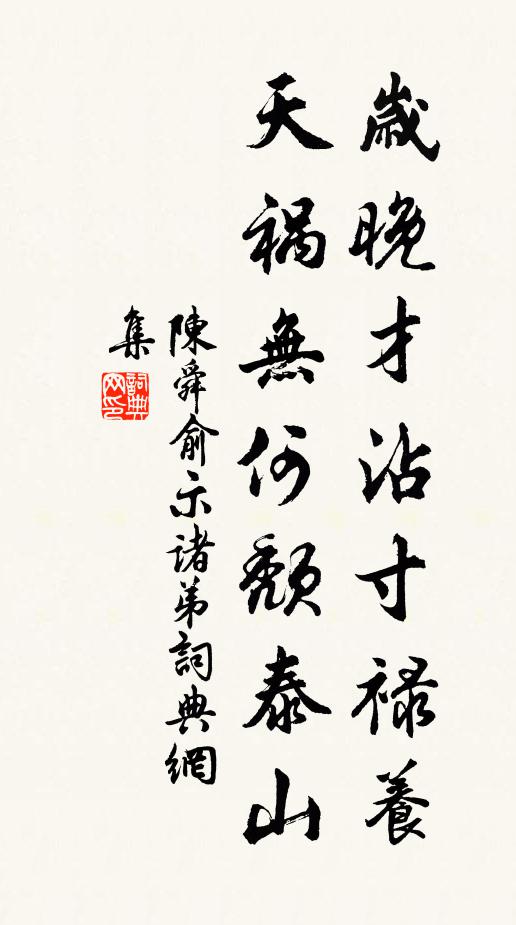 歲晚才沾寸祿養
天禍無何頹泰山
陳舜俞示諸弟詞典網
集
詞典
网印